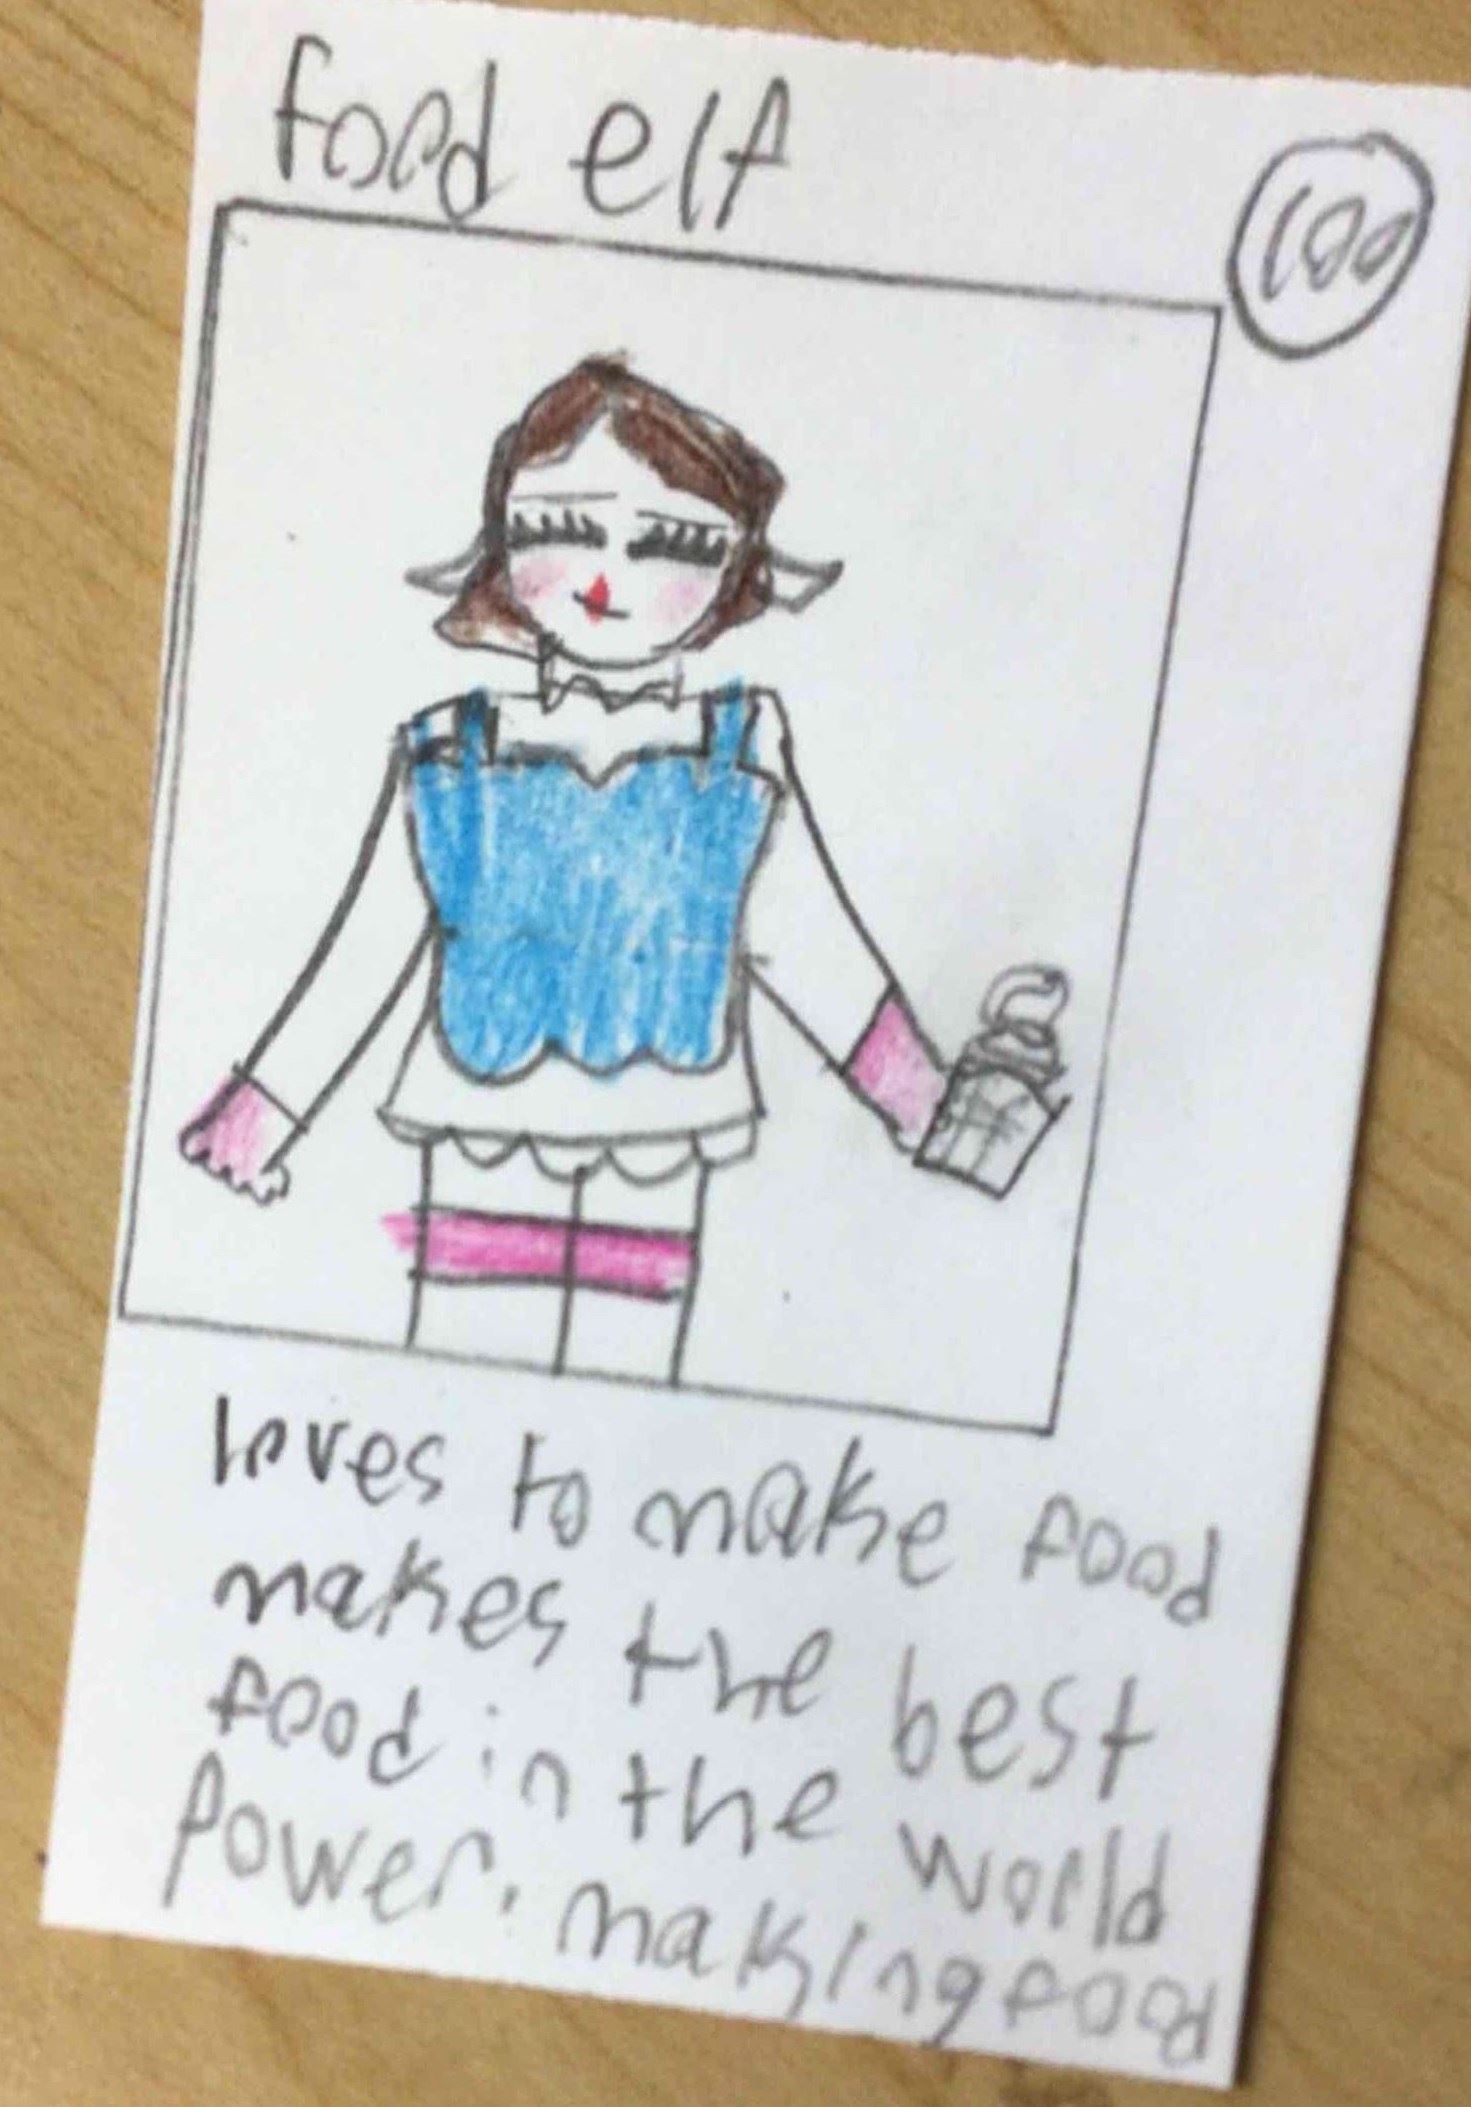 food elf
100
loves to make food
makes the best
food in the world
Power: making food